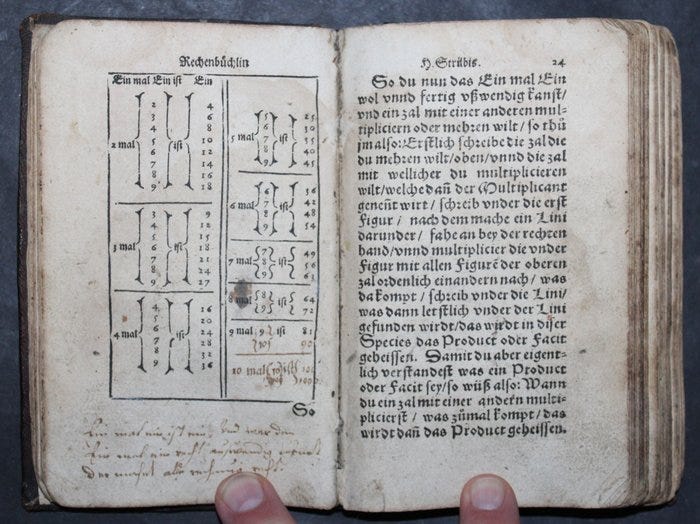 Rechenbüchlin
Ein mal Ein ist Ein
2 mal
2
3
4
5
6
7
8
9
ist
4
6
8
10
12
14
16
18
3 mal
3
4
5
6
7
8
9
ist
9
12
15
18
21
24
27
4 mal
4
5
6
7
8
9
ist
16
20
24
28
32
36
5 mal
5
6
7
8
9
ist
25
30
35
40
45
6 mal
6
7
8
9
ist
36
42
48
54
7 mal
7
8
9
ist
49
56
63
8 mal
8
9
ist
64
72
9 mal 9 ist 81
10 90
10 mal
So
Ein mal ein ist ein
Ein mal ein recht auswendig
der macht alle rechnung recht
H. Strübis. 24
So du nun das Ein mal Ein
wol vnnd fertig vßwendig kanst/
vnd ein zal mit einer anderen mul-
tipliciern oder mehren wilt/ so thů
jm also: Erstlich schreibe die zal die
du mehren wilt/ oben/ vnnd die zal
mit wellicher du multiplicieren
wilt/ welche dañ der Multiplicant
geneñt wirt/ schreib vnder die erst
Figur/ nach dem mache ein Lini
darunder/ fahe an bey der rechten
hand/ vnnd multiplicier die vnder
Figur mit allen Figurẽ der oberen
zal ordenlich einandern nach/ was
da kompt/ schreib vnder die Lini/
was dann letstlich vnder der Lini
gefunden wirdt/ das wirdt in diser
Species das Product oder Facit
geheissen. Damit du aber eigent-
lich verstandest was ein Product
oder Facit sey/ so wüß also: Wann
du ein zal mit einer andern multi-
plicierst/ was zůmal kompt/ das
wirdt dañ das Product geheissen.